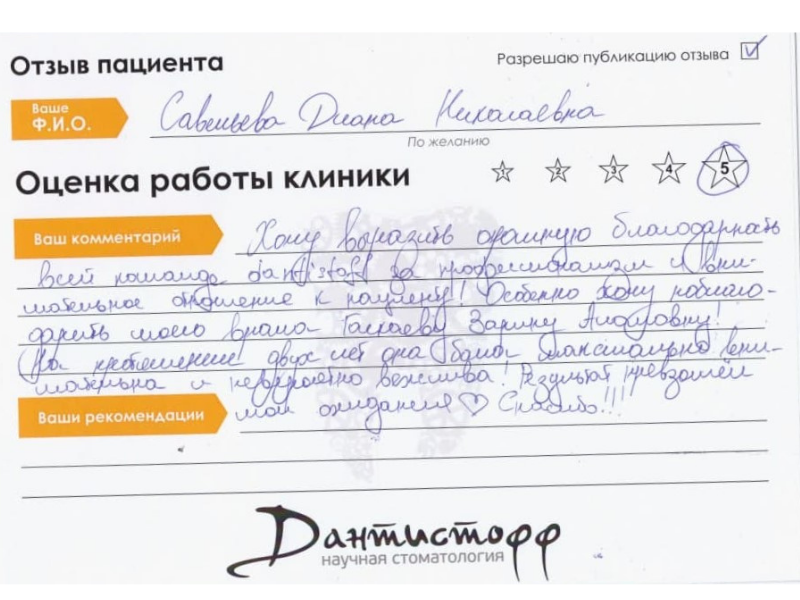 Отзыв пациента
Разрешаю публикацию отзыва
Ваше
Ф.И.О.
Савельева Диана Николаевна
По желанию
Оценка работы клиники
1 2 3 4 5
Ваш комментарий
Хочу выразить огромную благодарность
всей команде dantistoff за профессионализм и вни-
мательное отношение к пациенту! Особенно хочу поблаго-
дарить моего врача Зарину
На протяжении двух лет она была максимально вни-
мательна и невероятно вежлива! Результат превзошёл
Ваши рекомендации
мои ожидания ♡ Спасибо!!!
Дантистофф
научная стоматология